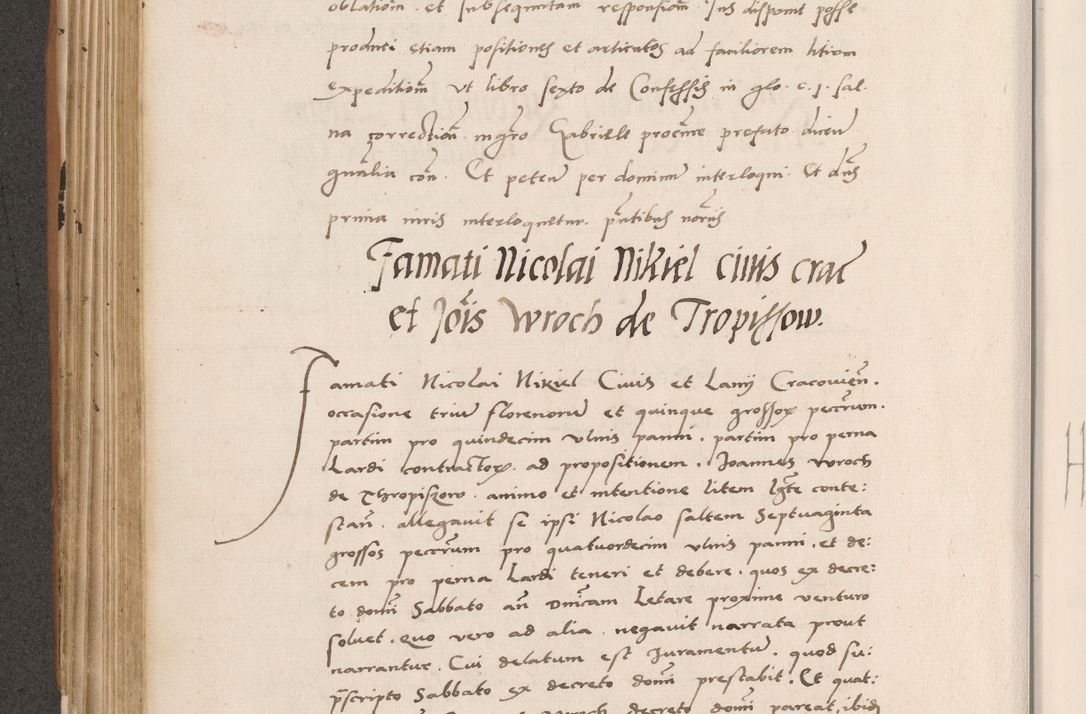 oblatiom et subsequutam responsiom Jus disponit posse
produci etiam positiones et articulos ad faciliorem litium
expeditiom ut libro sexto de Confessis in glo. c. j. sal.
na correctiom mgro Gabrielle procure prefato dicen
gnalia con. Et peten per dominum interloqui. Et dns
prima iuris interloquetur. pntibus noriis
Famati Nicolai Nikiel ciuis crac
et Jois Wroch de Tropissow.
Famati Nicolai Nikiel Ciuis et Lanij Cracouien.
occasione trium florenorum et quinque grossorum peccrum.
partim pro quindecim ulnis panni. partim pro perna
Lardi contractorum. ad propositionem. Joannes Wroch
de Thropiszow. animo et intentione litem lgte conte:
stan. allegauit se ipsi Nicolao saltem Septuaginta
grossos peccrum pro quatuordecim ulnis panni. et de:
cem pro perna Lardi teneri et debere. quos ex decre:
to domi Sabbato an Dnicam Letare proxime venturo
soluet. Quo vero ad alia. negauit narrata prout
narrantur. Cui delatum est Juramentum. quod su:
prscripto Sabbato ex decreto domi prestabit. Et quat:
decreto domi pareat, ibid